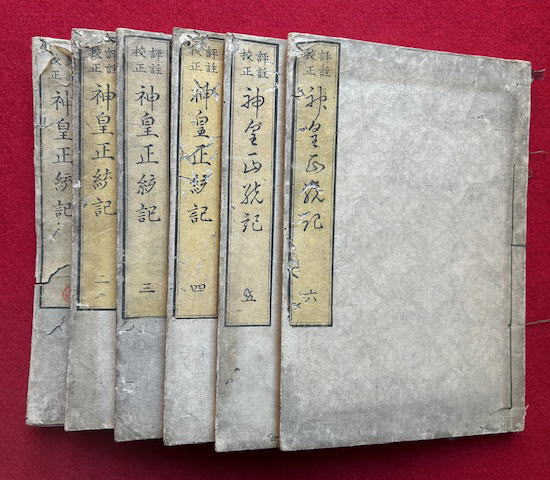 校正
神皇正統記
評註
校正
神皇正統記
二
評註
校正
神皇正統記
三
評註
校正
神皇正統記
四
評註
校正
神皇正統記
五
評註
校正
神皇正統記
六